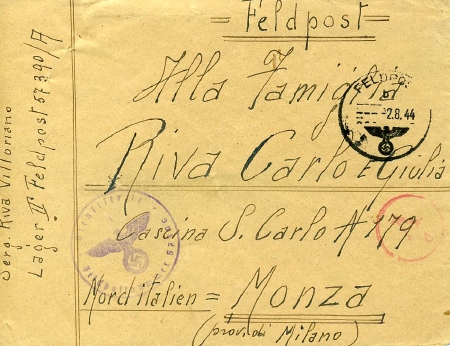 = Feldpost =
Alla Famiglia
Riva Carlo e Giulia
Cascina S. Carlo N 179
Norditalien = Monza
(prov. di Milano)
Serg. Riva Vittoriano
Lager II° Feldpost 57390/A
FELDPOST
b
-2.8.44